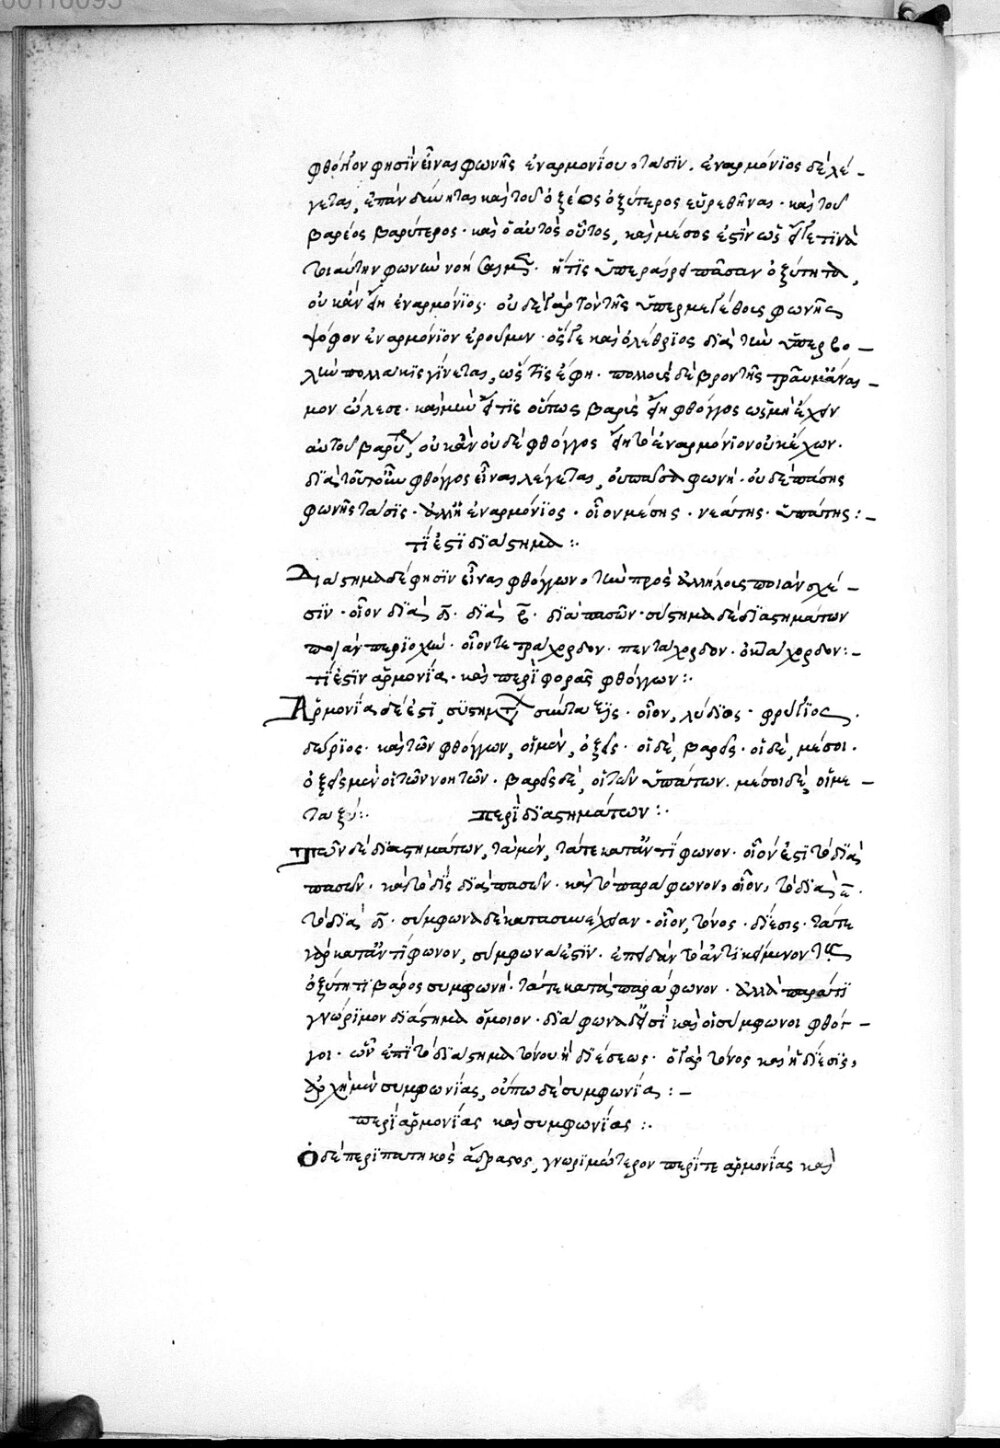 φθόγγον φησὶν εἶναι φωνῆς ἐναρμονίου τάσιν. ἐναρμόνιος δὲ λέ-
γεται, ἐπὰν δύνηται καὶ τοῦ ὀξέος ὀξύτερος εὑρεθῆναι· καὶ τοῦ
βαρέος βαρύτερος· καὶ ὁ αὐτὸς οὗτος, καὶ μέσος ἐστὶν ὡς εἴγε τινὰ
τοιαύτην φωνὴν νοήσαιμεν· ἥτις ὑπεραίρει πᾶσαν ὀξύτητα,
οὐκ ἂν εἴη ἐναρμόνιος· οὐδὲ γὰρ τὸν τῆς ὑπερμεγέθους φωνῆς
ψόφον ἐναρμόνιον ἐροῦμεν· ὅς γε καὶ ὀλέθριος διὰ τὴν ὑπερβο-
λὴν πολλάκις γίνεται, ὥς τις ἔφη· πολλοὺς δὲ βροντῆς τραῦμ' ἄναι-
μον ὤλεσε· καὶ μὴν εἴ τις οὕπως βαρὺς εἴη φθόγγος ὡς μὴ ἔχειν
αὐτοῦ βαρύτερον, οὐκ ἂν οὐδὲ φθόγγος εἴη τὸ ἐναρμόνιον οὐκ ἔχων.
διὰ τοῦτο οὖν φθόγγος εἶναι λέγεται, οὐ πᾶσα φωνή· οὐδὲ πάσης
φωνῆς τάσις· ἀλλ' ἡ ἐναρμόνιος· οἷον μέσης· νεάτης· ὑπάτης:-
τί ἐστι διάστημα:·
Διάστημα δέ φησιν εἶναι φθόγγων τὴν πρὸς ἀλλήλους ποιὰν σχέ-
σιν· οἷον διὰ δ̅· διὰ ε̅· διαπασῶν· σύστημα δὲ διαστημάτων
ποιὰν περιοχήν· οἷον τετράχορδον· πεντάχορδον· ὀκτάχορδον:-
τί ἐστιν ἁρμονία· καὶ περὶ φορᾶς φθόγγων:·
Ἁρμονία δέ ἐστι, συστημάτων σύνταξις· οἷον, λύδιος· φρύγιος.
δώριος· καὶ τῶν φθόγγων, οἱ μὲν, ὀξεῖς· οἱ δὲ, βαρεῖς· οἱ δὲ, μέσοι.
ὀξεῖς μὲν οἱ τῶν νητῶν· βαρεῖς δὲ, οἱ τῶν ὑπάτων. μέσοι δὲ, οἱ με-
ταξύ:· περὶ διαστημάτων:·
τῶν δὲ διαστημάτων, τὰ μὲν, τά τε κατ' ἀντίφωνον· οἷόν ἐστι τὸ διὰ
πασῶν· καὶ τὸ δὶς διὰ πασῶν· καὶ τὸ παράφωνον, οἷον, τὸ διὰ ε̅.
τὸ διὰ δ̅· σύμφωνα δὲ κατὰ συνέχειαν· οἷον, τόνος· δίεσις· τά τε
γὰρ κατ' ἀντίφωνον, σύμφωνά ἐστιν· ἐπειδὰν τὸ ἀντικείμενον τῆς
ὀξύτητι βάρος συμφωνῇ· τά τε κατὰ παράφωνον· ἀλλὰ παρά τι
γνώριμον διάστημα ὅμοιον· διάφωνα δ' εἰσὶ καὶ οἱ σύμφωνοι φθόγ-
γοι· ὧν ἐπὶ τὸ διάστημα τόνου ἢ διέσεως· ὁ γὰρ τόνος καὶ ἡ δίεσις,
ἀρχὴ μὲν συμφωνίας, οὔπω δὲ συμφωνία:-
περὶ ἁρμονίας καὶ συμφωνίας:·
Ὁ δὲ περιπατητικὸς ἄδραστος, γνωριμώτερον περί τε ἁρμονίας καὶ